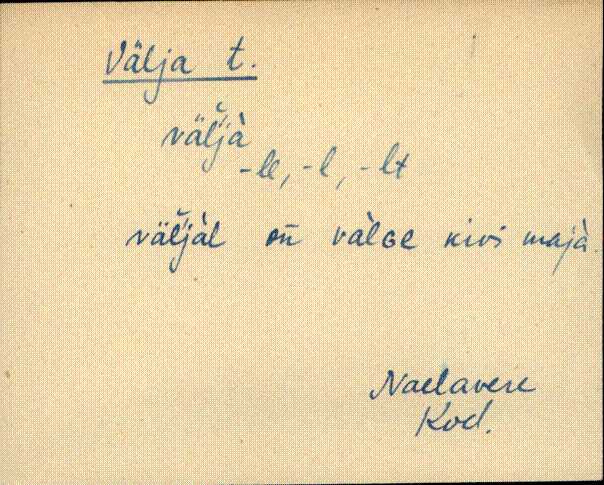 Välja t.
väl̆jà
-le, -l, -lt
väl̆jàl on̄ vàlGE kivi majà.
Naelavere
Kod.